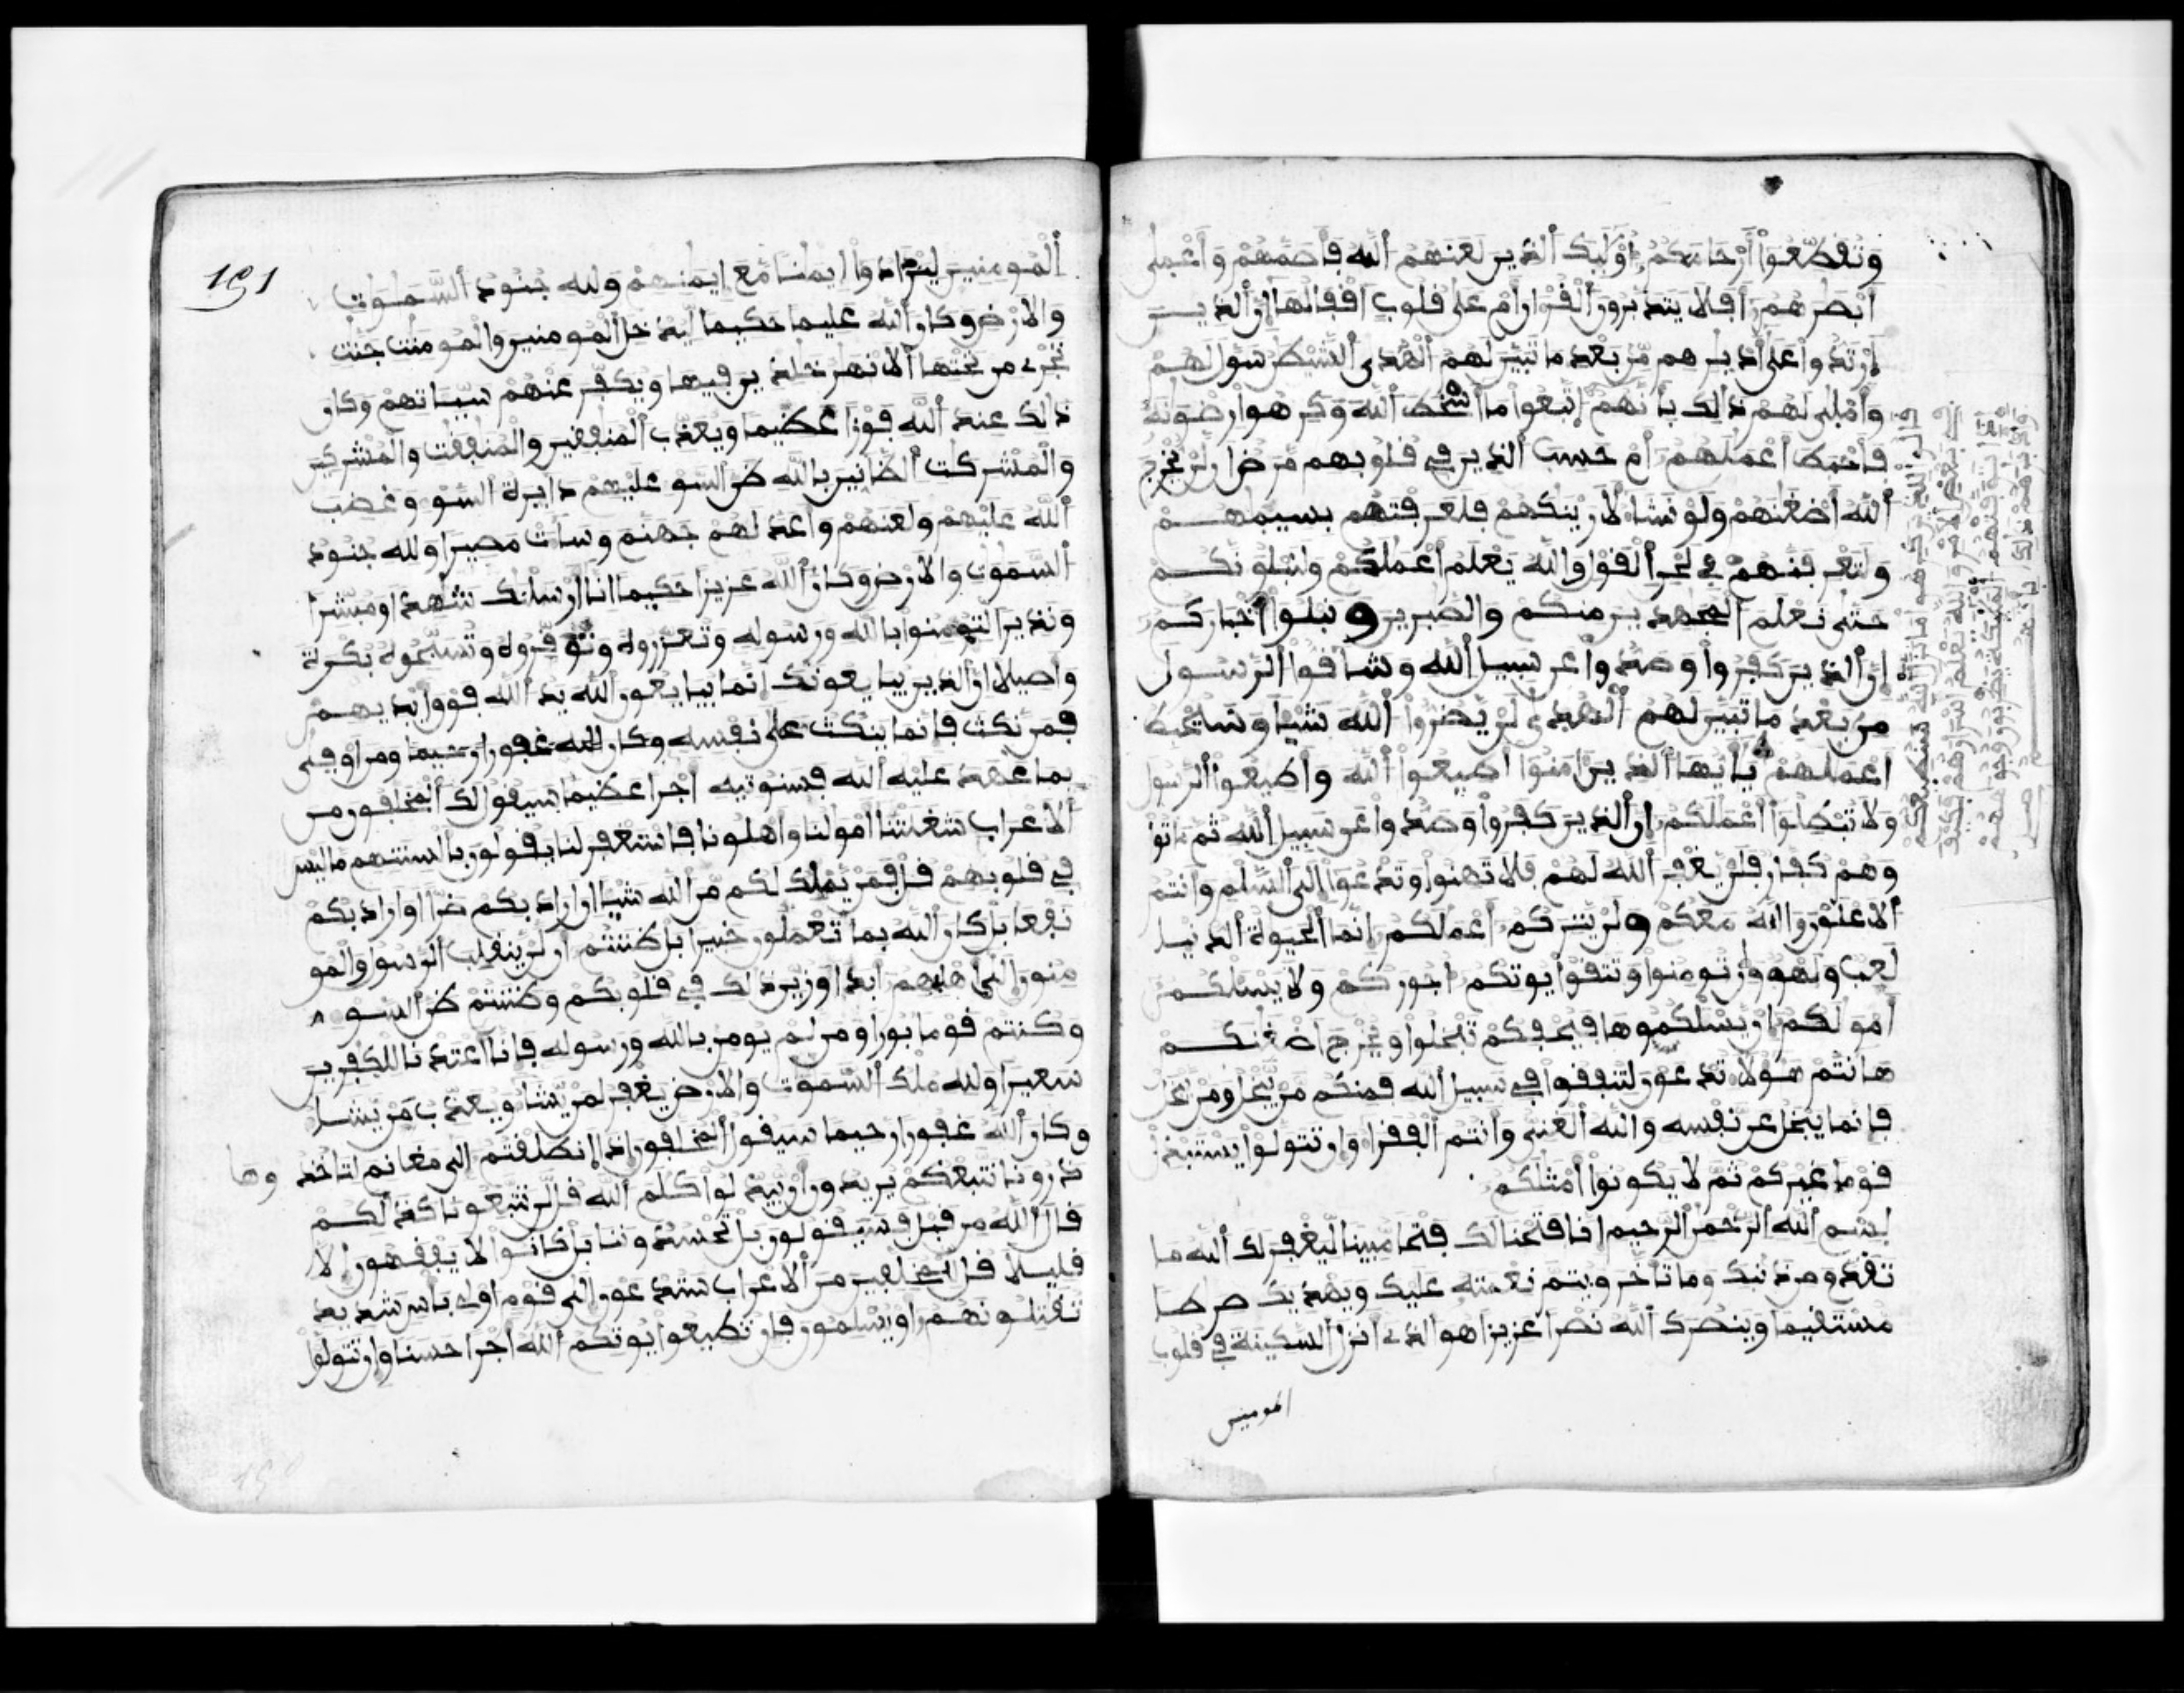 وتقطعوا أرحامكم أوليك الذين لعنهم الله فأصمهم وأعمى
أبصرهم أفلا يتدبرون القرءان أم على قلوب اقفالها إن الذين
ارتدوا على أدبرهم من بعد ما تبين لهم الهدى الشيطن سول لهم
وأملى لهم ذالك بأنهم اتبعوا ما أسخط الله وكرهوا رضونه
فأحبط أعملهم أم حسب الذين في قلوبهم مرض ان لن يخرج
الله أضغنهم ولو نشا لأرينكهم فلعرفتهم بسيمهم
ولتعرفنهم في لحن القول والله يعلم أعملكم ولنبلونكم
حتى نعلم المجهدين منكم والصبرين ونبلوا أخباركم
إن الذين كفروا وصدوا عن سبيل الله وشاقوا الرسول
من بعد ما تبين لهم الهدى لن يضروا الله شيا وسيحبط
اعملهم يأيها الذين ءامنوا اطيعوا الله وأطيعوا الرسول
ولا تبطلوا أعملكم إن الذين كفروا وصدوا عن سبيل الله ثم ماتوا
وهم كفار فلن يغفر الله لهم فلا تهنوا وتدعوا إلى السلم وأنتم
ألاعلون والله معكم ولن يتركم أعملكم إنما الحيوة الدنيا
لعب ولهو وإن تومنوا وتتقوا يوتكم اجوركم ولا يسلكم
أمولكم إن يسلكموها فيحفكم تبخلوا ويخرج اضغنكم
هانتم هؤلا تدعون لتنفقوا في سبيل الله فمنكم من يبخل ومن يبخل
فإنما يبخل عن نفسه والله الغنى وأنتم الفقرا وإن تتولوا يستبدل
قوما غيركم ثم لا يكونوا أمثلكم
بسم الله الرحمن الرحيم إنا فتحنا لك فتحا مبينا ليغفر لك الله ما
تقدم من ذنبك وما تأخر ويتم نعمته عليك ويهديك صرطا
مستقيما وينصرك الله نصرا عزيزا هو الذى انزل السكينة في قلوب
المومنين
191
المومنين ليزدادوا إيمنا مع إيمنهم ولله جنود السموت
والارض وكان الله عليما حكيما ليدخل المومنين والمومنت جنت
تجرى من تحتها ألانهر خلدين فيها ويكفر عنهم سياتهم وكان
ذالك عند الله فوزا عظيما ويعذب المنفقين والمنفقت والمشركين
والمشركت الظانين بالله ظن السو عليهم دايرة السو وغضب
الله عليهم ولعنهم وأعد لهم جهنم وسات مصيرا ولله جنود
السموت والارض وكان الله عزيزا حكيما انا أرسلنك شهدا ومبشرا
ونذيرا لتومنوا بالله ورسوله وتعزروه وتوقروه وتسبحوه بكرة
وأصيلا إن الذين يبايعونك إنما يبايعون الله يد الله فوق أيديهم
فمن نكث فإنما ينكث على نفسه وكان الله غفورا رحيما ومن اوفى
بما عهد عليه الله فسنوتيه اجرا عظيما سيقول لك المخلفون من
ألاعراب شغلتنا أمولنا وأهلونا فاستغفر لنا يقولون بألسنتهم ما ليس
في قلوبهم قل فمن يملك لكم من الله شيا ان اراد بكم ضرا او اراد بكم
نفعا بل كان الله بما تعملون خبيرا بل ظننتم ان لن ينقلب الرسول والمو
منون إلى اهليهم ابدا وزين ذالك في قلوبكم وظننتم ظن السو
وكنتم قوما بورا ومن لم يومن بالله ورسوله فإنا أعتدنا للكفرين
سعيرا ولله ملك السموت والارض يغفر لمن يشا ويعذب من يشا
وكان الله غفورا رحيما سيقول المخلفون إذا انطلقتم إلى مغانم لتاخذوها
ذرونا نتبعكم يريدون أن يبدلوا كلم الله قل لن تتبعونا كذلكم
قال الله من قبل فسيقولون بل تحسدوننا بل كانوا لا يفقهون إلا
قليلا قل للمخلفين من ألاعراب ستدعون إلى قوم اولى باس شديد
تقتلونهم أو يسلمون فإن تطيعوا يوتكم الله اجرا حسنا وإن تتولوا